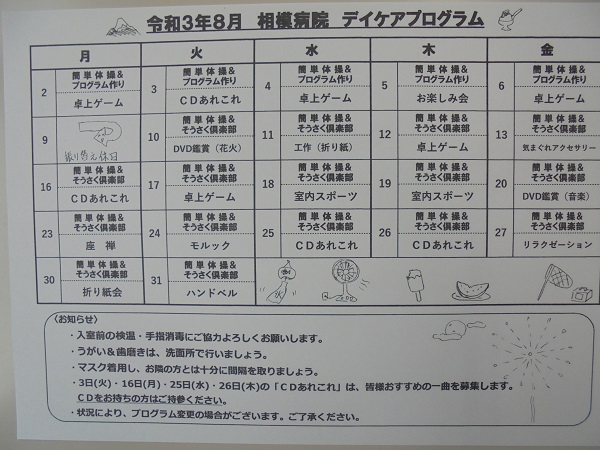 令和3年8月 相模病院 デイケアプログラム
月 火 水 木 金
2 簡単体操&プログラム作り 卓上ゲーム
3 簡単体操&プログラム作り CDあれこれ
4 簡単体操&プログラム作り 卓上ゲーム
5 簡単体操&プログラム作り お楽しみ会
6 簡単体操&プログラム作り 卓上ゲーム
9 振り替え休日
10 簡単体操&そうさく倶楽部 DVD鑑賞(花火)
11 簡単体操&そうさく倶楽部 工作(折り紙)
12 簡単体操&そうさく倶楽部 卓上ゲーム
13 簡単体操&そうさく倶楽部 気まぐれアクセサリー
16 簡単体操&そうさく倶楽部 CDあれこれ
17 簡単体操&そうさく倶楽部 卓上ゲーム
18 簡単体操&そうさく倶楽部 室内スポーツ
19 簡単体操&そうさく倶楽部 室内スポーツ
20 簡単体操&そうさく倶楽部 DVD鑑賞(音楽)
23 簡単体操&そうさく倶楽部 座禅
24 簡単体操&そうさく倶楽部 モルック
25 簡単体操&そうさく倶楽部 CDあれこれ
26 簡単体操&そうさく倶楽部 CDあれこれ
27 簡単体操&そうさく倶楽部 リラクゼーション
30 簡単体操&そうさく倶楽部 折り紙会
31 簡単体操&そうさく倶楽部 ハンドベル
〈お知らせ〉
・入室前の検温・手指消毒にご協力よろしくお願いします。
・うがい&歯磨きは、洗面所で行いましょう。
・マスク着用し、お隣の方とは十分に間隔を取りましょう。
・3日(火)・16日(月)・25日(水)・26日(木)の「CDあれこれ」は、皆様おすすめの一曲を募集します。
CDをお持ちの方はご持参ください。
・状況により、プログラム変更の場合がございます。ご了承ください。